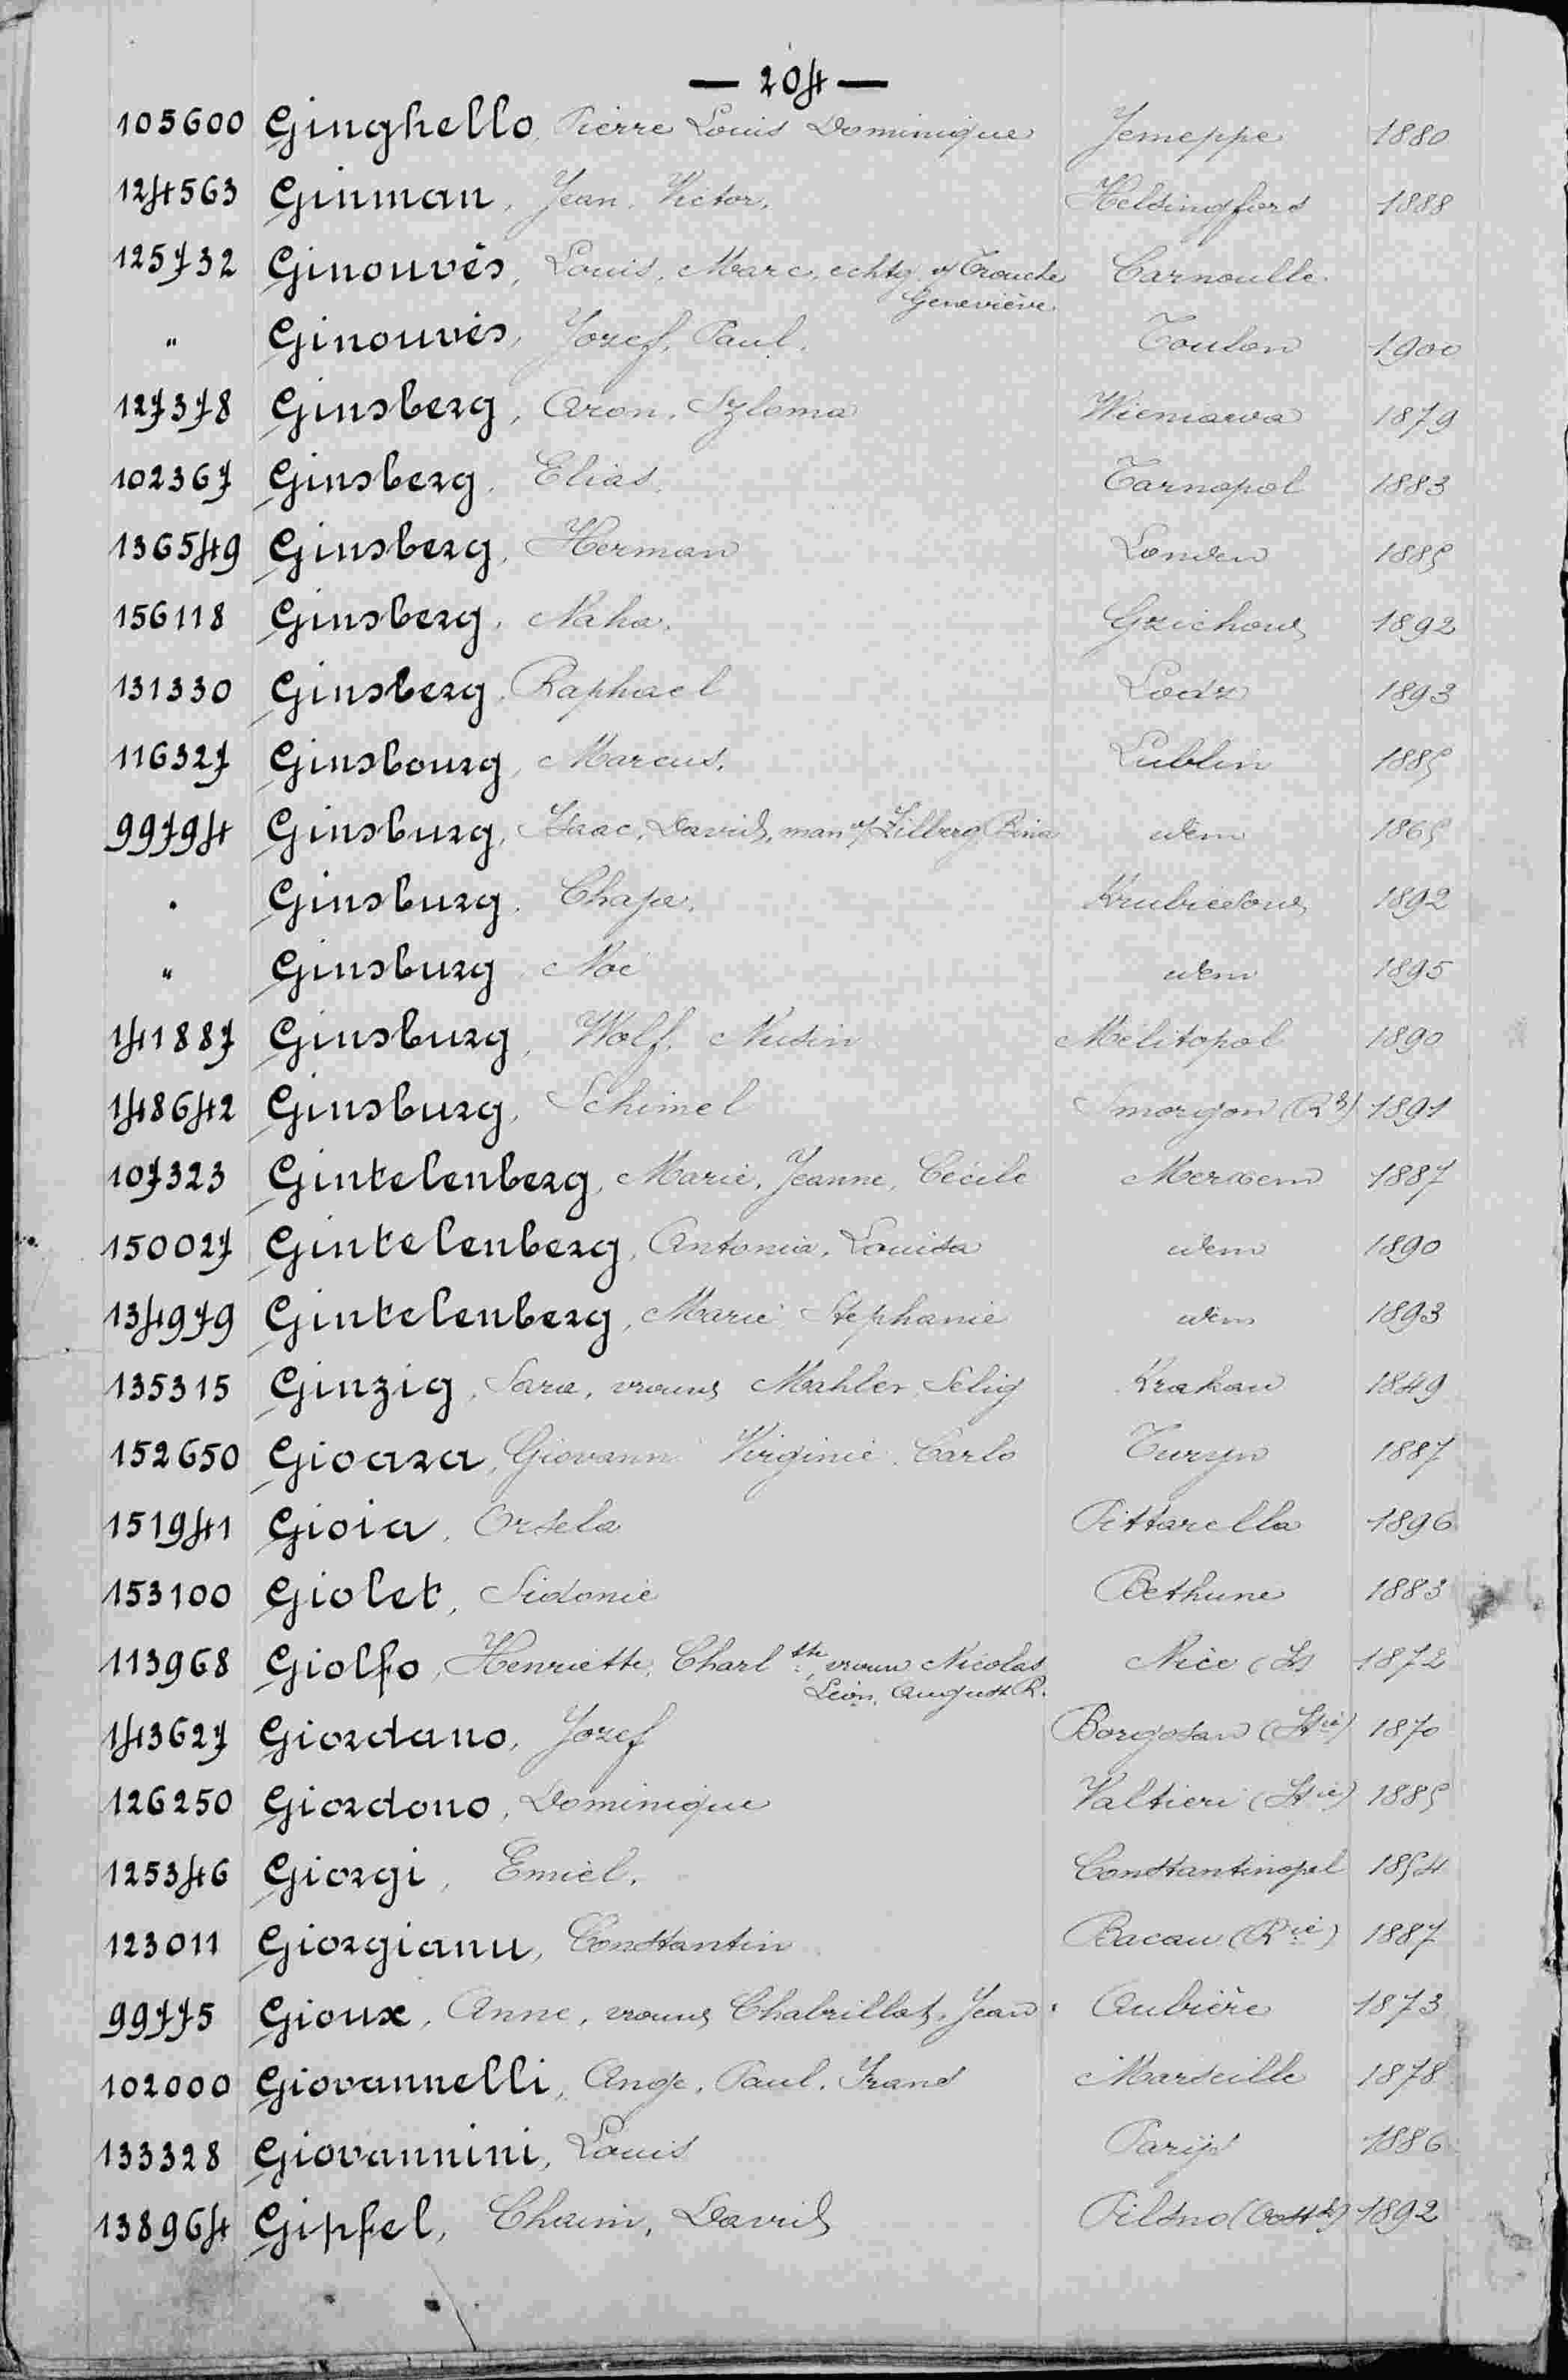 — 204 —
105600 Ginghello, Pierre Louis Dominique Jemeppe 1880
124563 Ginman, Jean, Victor. Helsingfors 1888
125732 Ginouvès, Louis, Marc, echtg. v/ Trouche Carnoulle
Geneviève
" Ginouvès, Jozef, Paul. Toulon 1900
127378 Ginsberg, Aron, Szloma Wieniawa 1879
102367 Ginsberg, Elias. Tarnopol 1883
136549 Ginsberg, Herman Londen 1885
156118 Ginsberg, Naha. Gzichow 1892
131330 Ginsberg, Raphael Lodz 1893
116327 Ginsbourg, Marcus. Lublin 1885
99794 Ginsburg, Isaac, David, man v/ Zilberg Bina idem 1865
" Ginsburg, Chaja. Krubiesow 1892
" Ginsburg, Noé idem 1895
141887 Ginsburg, Wolf, Nusin Mélitopol 1890
148642 Ginsburg, Schimel Smorgon (Rd) 1891
107323 Gintelenberg, Marie, Jeanne, Cécile Merxem 1887
150027 Gintelenberg, Antonia, Louisa idem 1890
134979 Gintelenberg, Marie Stephanie idem 1893
135315 Ginzig, Sara, vrouw Mahler, Selig Krakau 1849
152650 Gioara, Giovanni Virginie Carlo Turyn 1887
151941 Gioia, Orsela Pittarella 1896
153100 Giolet, Sidonie Bethune 1883
113968 Giolfo, Henriette, Charl tte, vrouw Nicolas Nice 1872
Léon, August R.
143627 Giordano, Jozef Borgosan (It ië) 1870
126250 Giordono, Dominique Valtieri (It ië) 1885
125346 Giorgi, Emiel. Constantinopel 1854
123011 Giorgianu, Constantin Bacau (R ië) 1887
99775 Gioux, Anne, vrouw Chabrillat, Jean Aubière 1873
102000 Giovannelli, Ange, Paul, Frans Marseille 1878
133328 Giovannini, Louis Parijs 1886
138964 Gipfel, Chaim, David Pilsno (Oostk) 1892